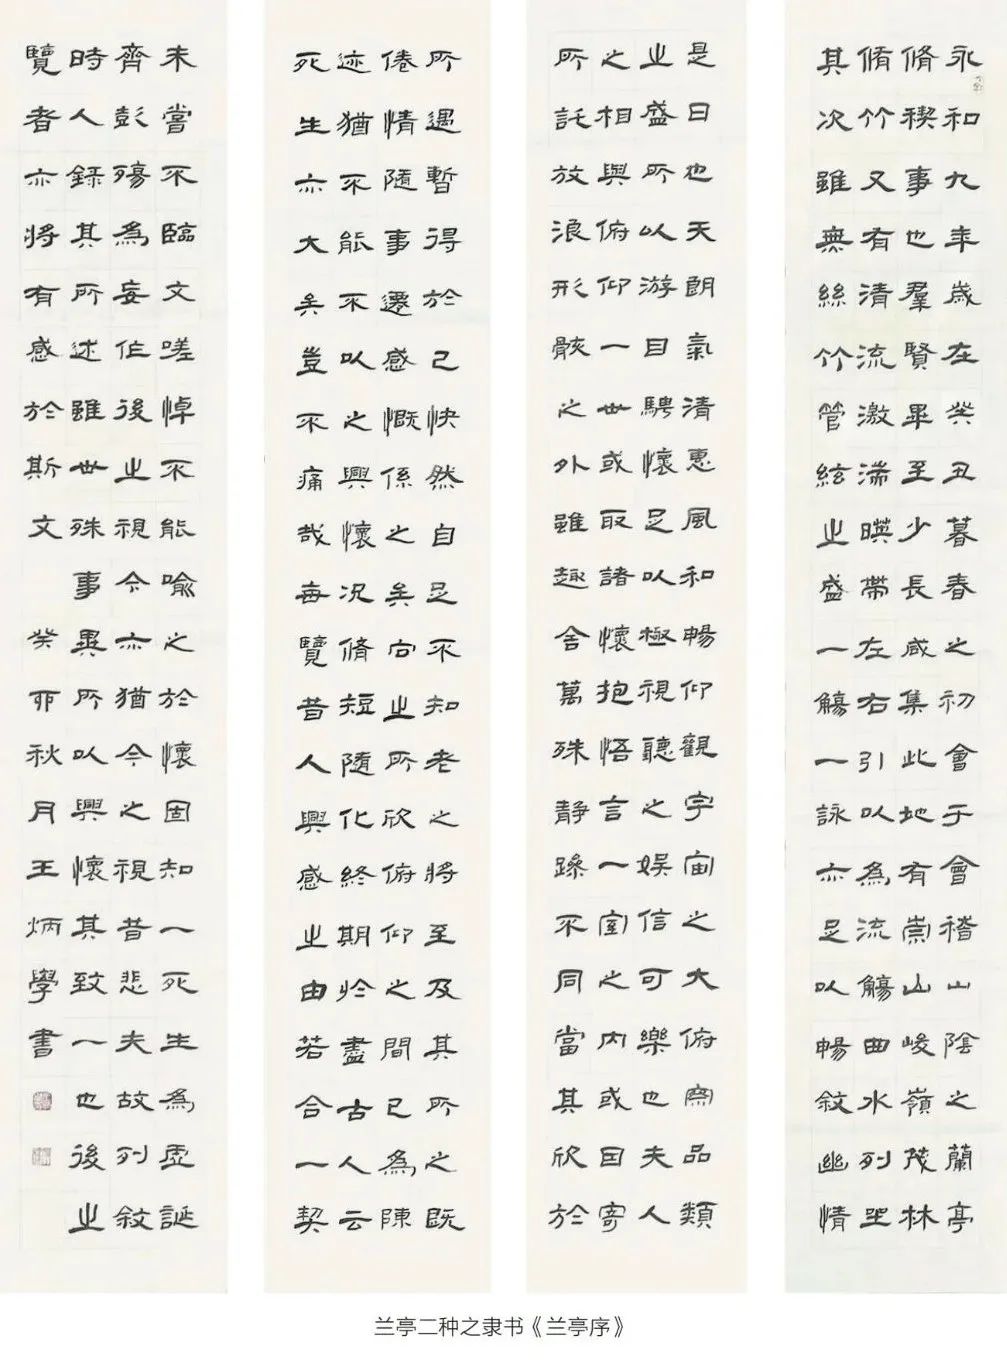 永和九年歲在癸丑暮春之初會于會稽山陰之蘭亭
脩稧事也羣賢畢至少長咸集此地有崇山峻嶺茂林
脩竹又有清流激湍暎帶左右引以為流觴曲水列坐
其次雖無絲竹管絃之盛一觴一詠亦足以暢敘幽情
是日也天朗氣清惠風和暢仰觀宇宙之大俯察品類
之盛所以游目騁懷足以極視聽之娛信可樂也夫人
之相與俯仰一世或取諸懷抱悟言一室之內或因寄
所託放浪形骸之外雖趣舍萬殊靜躁不同當其欣於
所遇暫得於己快然自足不知老之將至及其所之既
倦情隨事遷感慨係之矣向之所欣俯仰之間已為陳
迹猶不能不以之興懷況脩短隨化終期於盡古人云
死生亦大矣豈不痛哉每覽昔人興感之由若合一契
未嘗不臨文嗟悼不能喻之於懷固知一死生為虛誕
齊彭殤為妄作後之視今亦猶今之視昔悲夫故列敘
時人錄其所述雖世殊事異所以興懷其致一也後之
覽者亦將有感於斯文 癸卯秋月王炳學書
兰亭二种之隶书《兰亭序》